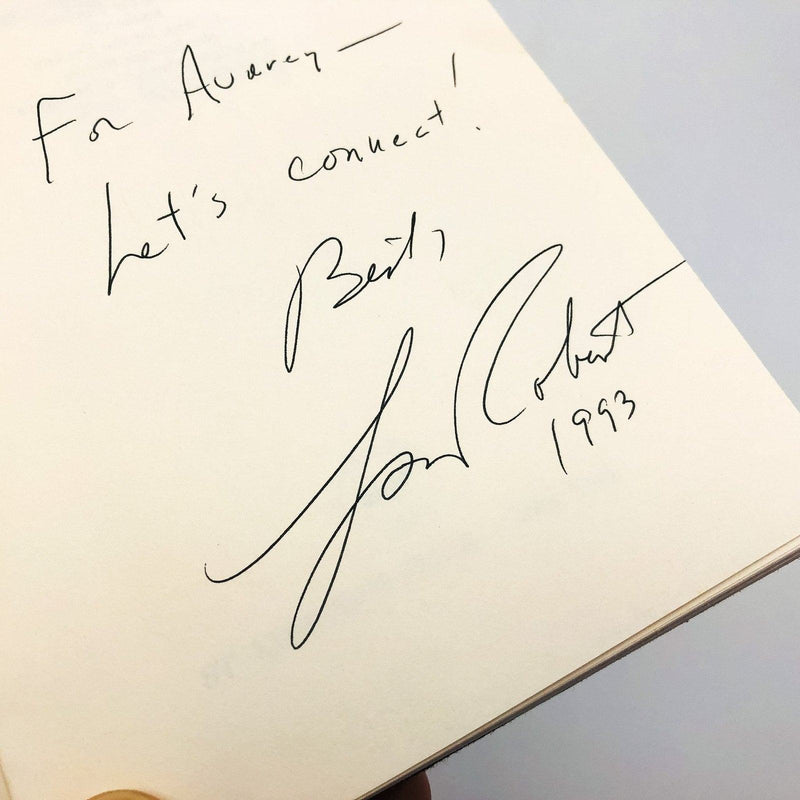 For Avarey —
Let's connect!
Best,
Robert
1993